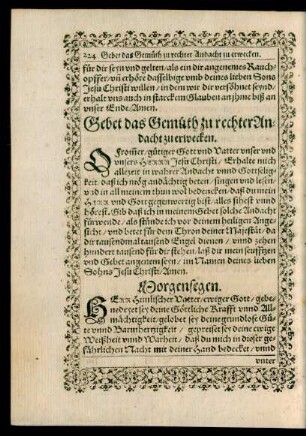 224 Gebet das Gemüth zu rechter Andacht zu erwecken.
für dir seyn vnd gelten/als ein dir angenemes Rauch-
opffer/vñ erhöre dasselbige vmb deines lieben Sons
Jesu Christi willen / in dem wir dir versöhnet seynd/
erhalt vns auch in starckem Glauben an jhme biß an
vnser Ende/Amen.
Gebet das Gemüth zu rechter An-
dacht zu erwecken.
O From̃er/ gütiger Gott vnd Vatter vnser vnd
vnsers HERRN Jesu Christi / Erhalte mich
allezeit in wahrer Andacht vnnd Gottselig-
keit/ daß ich mög andächtig beten/ singen vnd lesen/
vnd in all meinem thun wol bedencken/ daß du mein
HERR vnd Gott gegenwertig bist/ alles sihest vnnd
hörest. Gib daß ich in meinem Gebet solche Andacht
fürwende/ als stünde ich vor deinem heiligen Ange-
sicht / vnd betet für dem Thron deiner Majestät/ da
dir tausendmal tausend Engel dienen / vnnd zehen
hundert tausend für dir stehen/ laß dir mein seufftzen
vnd Gebet angenem seyn / im Namen deines lieben
Sohns Jesu Christi/Amen.
Morgensegen.
HERR Himlischer Vatter/ ewiger Gott / gebe-
nedeyet sey deine Göttliche Krafft vnnd All-
mächtigkeit/gelobet sey deine grundlose Gü-
te vnnd Barmhertzigkeit / gepreiset sey deine ewige
Weißheit vnnd Warheit / daß du mich in dieser ge-
fährlichen Nacht mit deiner Hand bedecket / vnnd
vnter